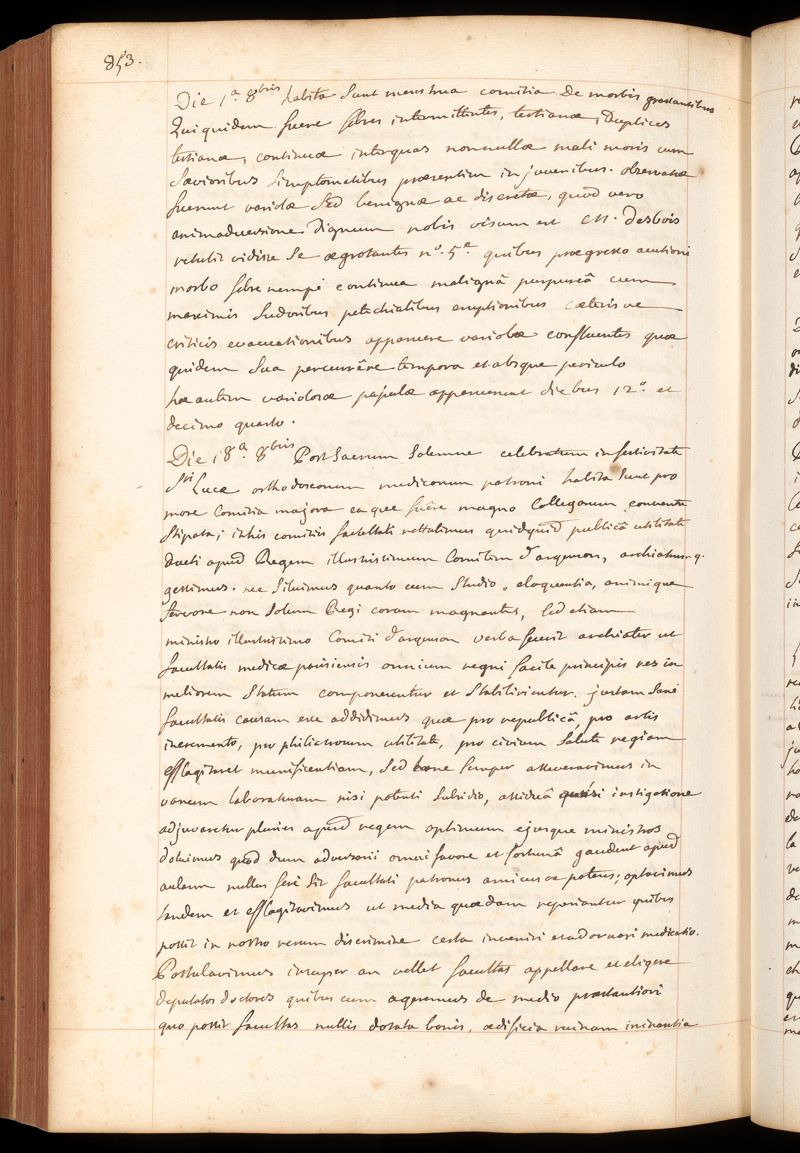 853.
Die 1ª 8bris habita sunt menstrua comitia de morbis grassantibus
Qui quidem fuere febres intermittentes, tertianæ, duplices
tertianæ, continuæ inter quas nonnullæ mali moris cum
sævioribus simptomatibus præsertim in juvenibus. observatæ
fuerunt variolæ sed benignæ ac discretæ, quod vero
animadversione dignum nobis visum est M. Desbois
retulit vidisse se ægrotantes n.º 5.e quibus prægresso acutiori
morbo febre nempè continua malignâ purpureâ cum
maximis sudoribus petechialibus eruptionibus cæteris ve
criticis evacuationibus apparuere variolæ confluentes quæ
quidem sua percurrêre tempora et absque periculo
hæ autem variolosæ papulæ apparuerunt diebus 12.º et
decimo quarto.
Die 18ª. 8bris Post Sacrum solemne celebratum in festivitate
Sti Lucæ orthodoxorum medicorum patroni habita sunt pro
more Comitia majora eaque fuêre magno Collegarum conventu
stipata; in his comitiis facultati rettulimus quidquid publicâ utilitate
ducti apud Regem illustrissimum Comitem d'argenson, archiatrum q.
gessimus. nec siluimus quanto cum studio, eloquentia, animique
fervore non solum Regi coram magnantes, sed etiam
ministro illustrissimo Comiti d'argenson verba fecerit archiater ut
facultatis medicæ parisiensis omnium regni facile principis res in
meliorem statum componerentur et stabilirentur. justam sanè
facultatis causam esse addidimus quæ pro republicâ, pro artis
incremento, pro philiatrorum utilitate, pro civium salute regiam
efflagitaret munificentiam, sed hanc semper asseveravimus in
vanum laboraturam nisi potenti subsidio, assiduâ quasi instigatione
adjuvaretur pluries apud regem optimum ejusque ministros
doluimus quod dum adversarii omni favore et fortunâ gaudent apud
aulam nullus ferè sit facultati patronus amicus ve potens; optavimus
tandem et efflagitavimus ut media quædam reperiantur quibus
possit in nostro rerum discrimine certa inveniri et adornari medicatio.
Postulavimus insuper an vellet facultas appellare et eligere
deputatos doctores quibus cum ageremus de medio præstantiori
quo possit facultas nullis dotata bonis, ædificia ruinam minantia